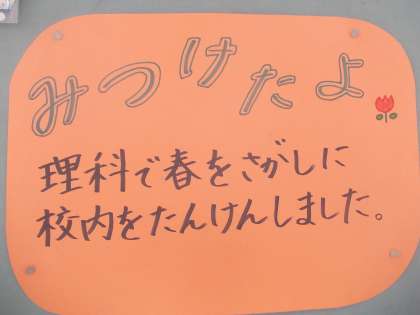 みつけたよ
理科で春をさがしに
校内をたんけんしました。